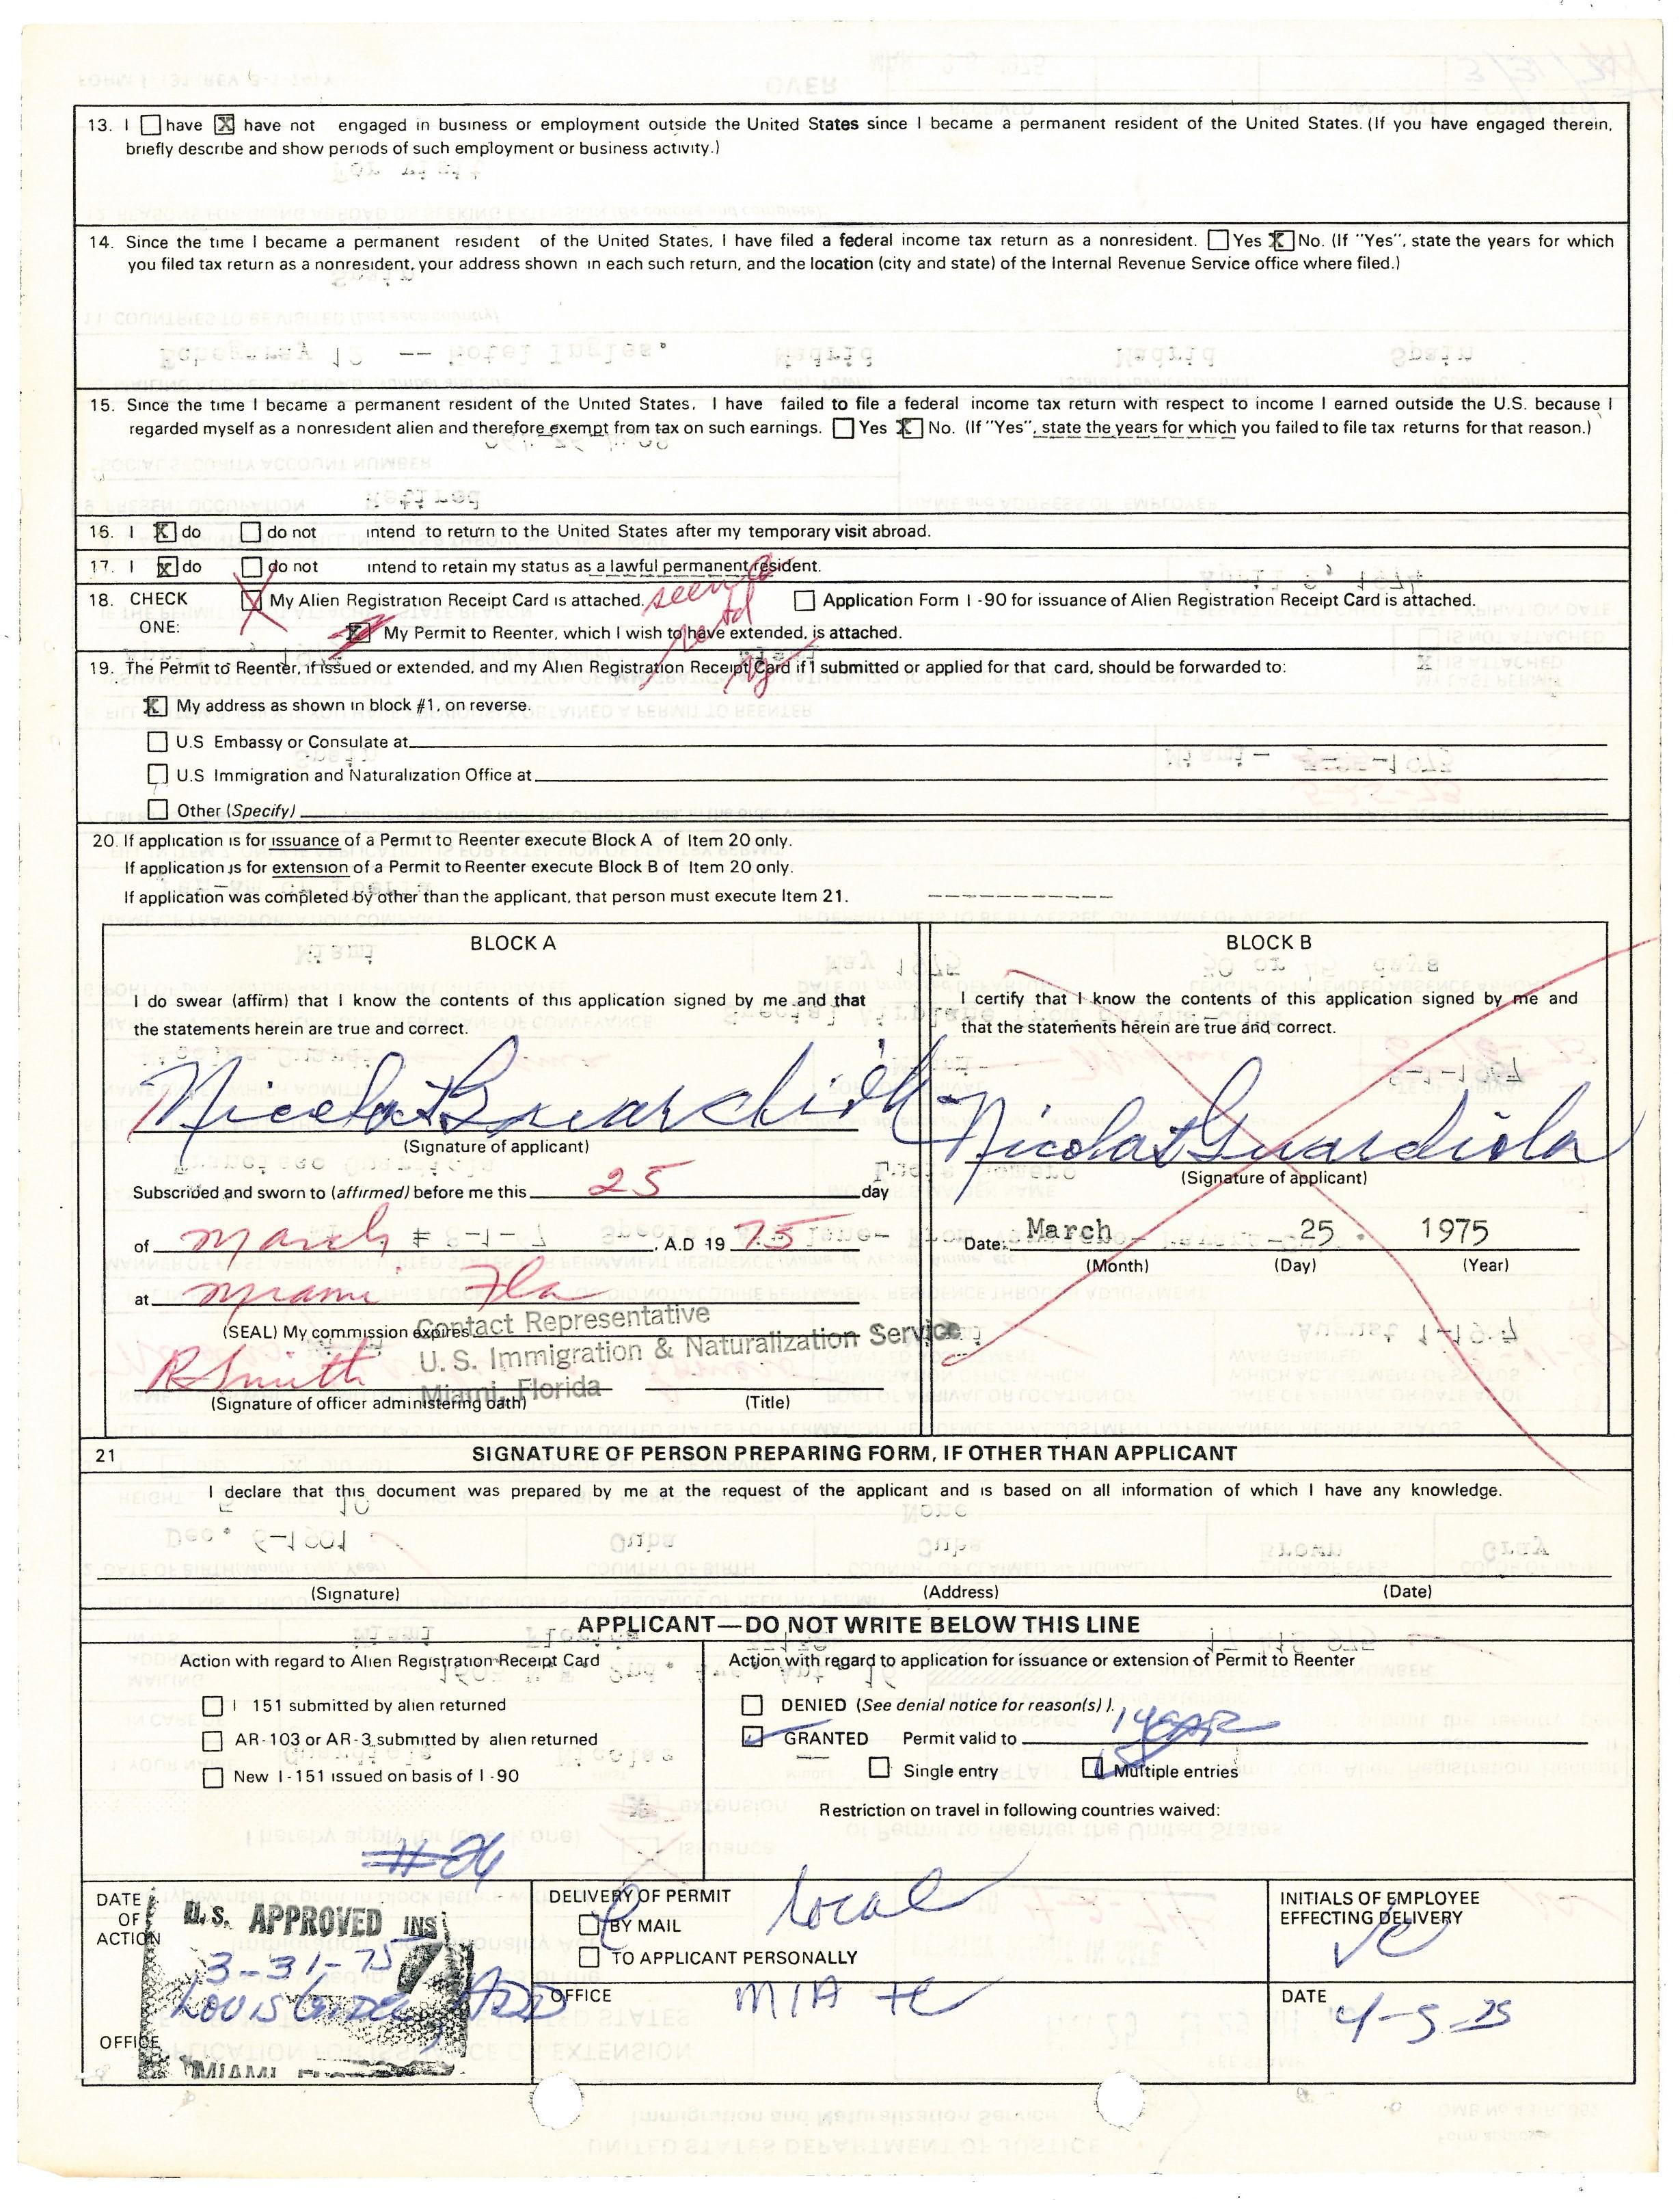 13. I ☐ have ☒ have not engaged in business or employment outside the United States since I became a permanent resident of the United States. (If you have engaged therein,
briefly describe and show periods of such employment or business activity.)
14. Since the time I became a permanent resident of the United States, I have filed a federal income tax return as a nonresident. ☐ Yes ☒ No. (If "Yes", state the years for which
you filed tax return as a nonresident, your address shown in each such return, and the location (city and state) of the Internal Revenue Service office where filed.)
15. Since the time I became a permanent resident of the United States, I have failed to file a federal income tax return with respect to income I earned outside the U.S. because I
regarded myself as a nonresident alien and therefore exempt from tax on such earnings. ☐ Yes ☒ No. (If "Yes", state the years for which you failed to file tax returns for that reason.)
16. I ☒ do ☐ do not intend to return to the United States after my temporary visit abroad.
17. I ☒ do ☐ do not intend to retain my status as a lawful permanent resident.
18. CHECK ☒ My Alien Registration Receipt Card is attached. seen & ☐ Application Form I-90 for issuance of Alien Registration Receipt Card is attached.
ONE: ☒ My Permit to Reenter, which I wish to have extended, is attached. retd
19. The Permit to Reenter, if issued or extended, and my Alien Registration Receipt Card if I submitted or applied for that card, should be forwarded to:
☒ My address as shown in block #1, on reverse.
☐ U.S Embassy or Consulate at
☐ U.S Immigration and Naturalization Office at
☐ Other (Specify)
20. If application is for issuance of a Permit to Reenter execute Block A of Item 20 only.
If application is for extension of a Permit to Reenter execute Block B of Item 20 only.
If application was completed by other than the applicant, that person must execute Item 21.
BLOCK A
I do swear (affirm) that I know the contents of this application signed by me and that
the statements herein are true and correct.
Nicolas Guardiola
(Signature of applicant)
Subscribed and sworn to (affirmed) before me this 25 day
of March , A.D 19 75
at Miami Fla
(SEAL) My commission expires
Contact Representative
U.S. Immigration & Naturalization Service
Miami, Florida
R Smith
(Signature of officer administering oath) (Title)
BLOCK B
I certify that I know the contents of this application signed by me and
that the statements herein are true and correct.
Nicolas Guardiola
(Signature of applicant)
Date: March 25 1975
(Month) (Day) (Year)
21 SIGNATURE OF PERSON PREPARING FORM, IF OTHER THAN APPLICANT
I declare that this document was prepared by me at the request of the applicant and is based on all information of which I have any knowledge.
(Signature) (Address) (Date)
APPLICANT—DO NOT WRITE BELOW THIS LINE
Action with regard to Alien Registration Receipt Card
☐ I 151 submitted by alien returned
☐ AR-103 or AR-3 submitted by alien returned
☐ New I-151 issued on basis of I-90
#24
Action with regard to application for issuance or extension of Permit to Reenter
☐ DENIED (See denial notice for reason(s) ).
☑ GRANTED Permit valid to 1 year
☐ Single entry ☑ Multiple entries
Restriction on travel in following countries waived:
DATE OF ACTION
U.S. APPROVED INS
3-31-75
OFFICE
MIAMI
DELIVERY OF PERMIT
☑ BY MAIL local
☐ TO APPLICANT PERSONALLY
OFFICE MIA
INITIALS OF EMPLOYEE
EFFECTING DELIVERY
DATE 4-5-75